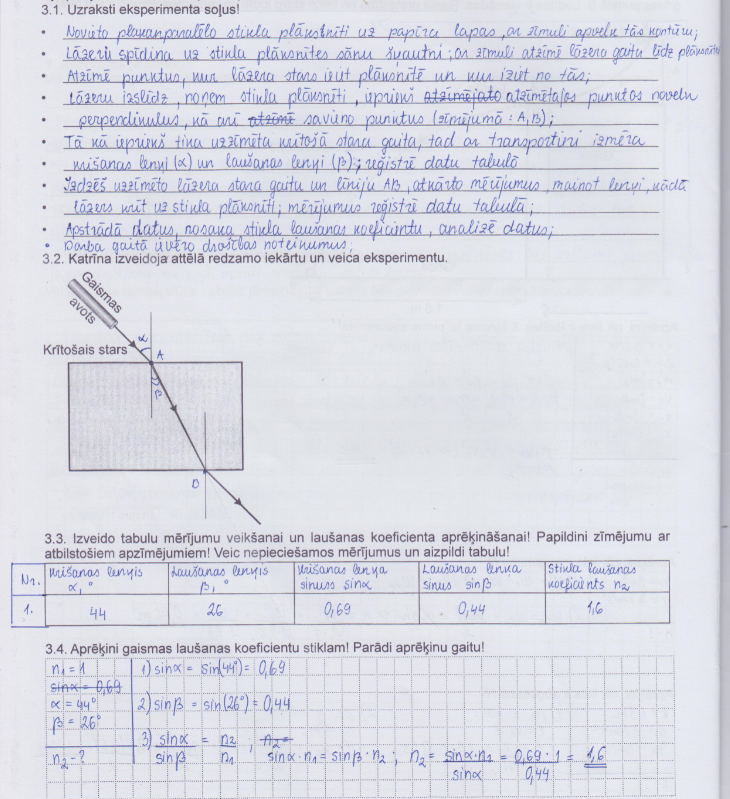 3.1. Uzraksti eksperimenta soļus!
• Novieto planparalēlo stikla plāksnīti uz papīra lapas, ar zīmuli apvelk tās kontūru;
• Lāzeru spīdina uz stikla plāksnītes sānu šķautni; ar zīmuli atzīmē lāzera gaitu līdz plāksnītei
• Atzīmē punktus, kur lāzera stars ieiet plāksnītē un kur iziet no tās;
• Lāzeru izslēdz, noņem stikla plāksnīti, iepriekš atzīmējato atzīmētajos punktos novelk
• perpendikulus, kā arī atzīmē savieno punktus (zīmējumā: A, B);
• Tā kā iepriekš tika uzzīmēta krītošā stara gaita, tad ar transportieri izmēra
• krišanas leņķi (α) un laušanas leņķi (β); reģistrē datu tabulā
• Izdzēš uzzīmēto lāzera stara gaitu un līniju AB, atkārto mērījumus, mainot leņķi, kādā
• lāzers krīt uz stikla plāksnīti; mērījumus reģistrē datu tabulā;
• Apstrādā datus, nosaka stikla laušanas koeficientu, analizē datus;
• Darba gaitā ievēro drošības noteikumus;
3.2. Katrīna izveidoja attēlā redzamo iekārtu un veica eksperimentu.
Gaismas
avots
α
Krītošais stars
A
β
B
3.3. Izveido tabulu mērījumu veikšanai un laušanas koeficienta aprēķināšanai! Papildini zīmējumu ar
atbilstošiem apzīmējumiem! Veic nepieciešamos mērījumus un aizpildi tabulu!
Nr. Krišanas leņķis α, ° Laušanas leņķis β, ° Krišanas leņķa sinuss sinα Laušanas leņķa sinus sinβ Stikla laušanas koeficients n₂
1. 44 26 0,69 0,44 1,6
3.4. Aprēķini gaismas laušanas koeficientu stiklam! Parādi aprēķinu gaitu!
n₁ = 1
sinα = 0,69
α = 44°
β = 26°
n₂ - ?
1) sinα = sin(44°) = 0,69
2) sinβ = sin(26°) = 0,44
3) sinα/sinβ = n₂/n₁ ; n₂ = sinα · n₁ = sinβ · n₂ ; n₂ = sinα·n₁/sinα = 0,69 · 1/0,44 = 1,6